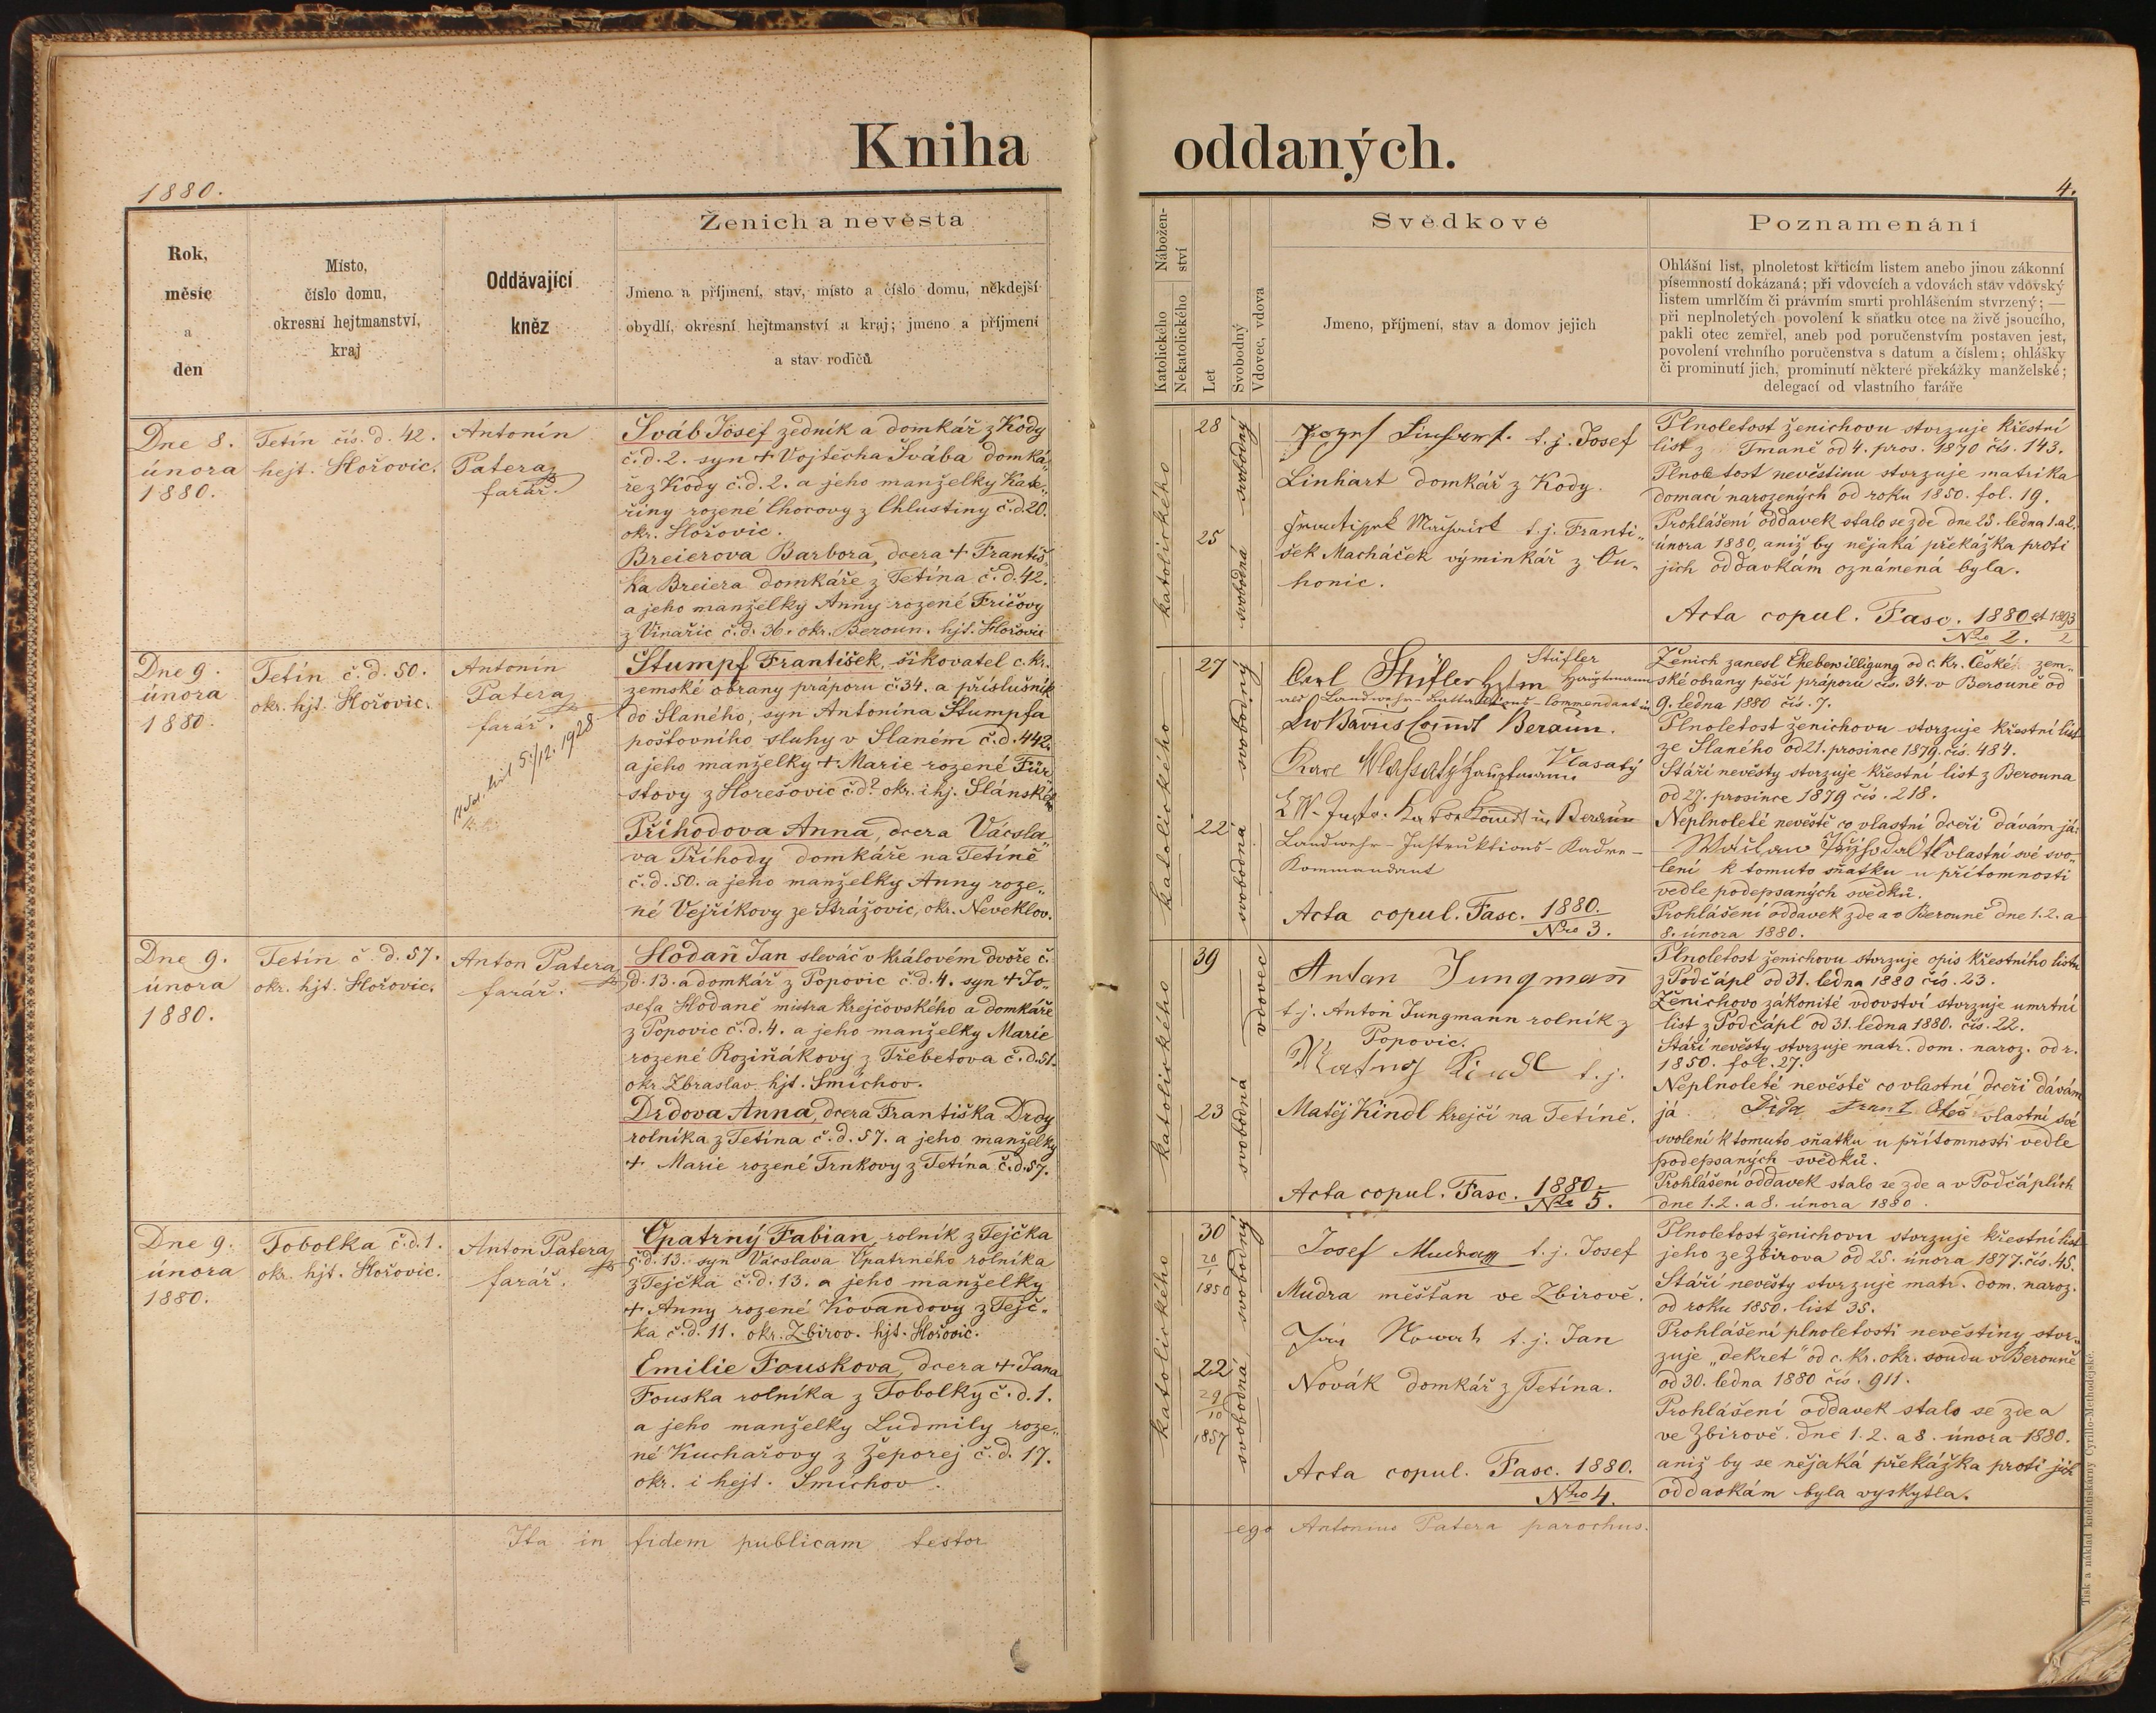 Kniha oddaných.
1880.
4.
Rok,
měsíc
a
den
Místo,
číslo domu,
okresní hejtmanství,
kraj
Oddávající
kněz
Ženich a nevěsta
Jmeno a příjmení, stav, místo a číslo domu, někdejší
obydlí, okresní hejtmanství a kraj; jmeno a příjmení
a stav rodičů
Nábožen-
ství
Katolického
Nekatolického
Let
Svobodný
Vdovec, vdova
Svědkové
Jmeno, příjmení, stav a domov jejich
Poznamenání
Ohlášní list, plnoletost křticím listem anebo jinou zákonní
písemností dokázaná; při vdovcích a vdovách stav vdovský
listem umrlčím či právním smrti prohlášením stvrzený; —
při neplnoletých povolení k sňatku otce na živě jsoucího,
pakli otec zemřel, aneb pod poručenstvím postaven jest,
povolení vrchního poručenstva s datum a číslem; ohlášky
či prominutí jich, prominutí některé překážky manželské;
delegací od vlastního faráře
Dne 8.
února
1880.
Tetín čís. d. 42.
hejt. Hořovic.
Antonín
Patera
farář.
Šváb Josef zedník a domkář z Kody
č. d. 2. syn + Vojtěcha Švába domká-
ře z Kody č. d. 2. a jeho manželky Kate-
řiny rozené Chocovy z Chlustiny č. d. 20.
okr. Hořovic.
Breierova Barbora, dcera + Františ-
ka Breiera domkáře z Tetína č. d. 42.
a jeho manželky Anny rozené Fričovy
z Vinařic č. d. 36. okr. Beroun. hjt. Hořovic
katolického
28
svobodný
25
svobodná
t. j. Josef
Linhart domkář z Kody.
t. j. Franti-
šek Macháček výminkář z Su-
honic.
Plnoletost ženichovu stvrzuje křestní
list z Tmaně od 4. pros. 1870 čís. 143.
Plnoletost nevěstinu stvrzuje matrika
domací narozených od roku 1850. fol. 19.
Prohlášení oddavek stalo se zde dne 25. ledna 1. a 2.
února 1880, aniž by nějaká překážka proti
jich oddavkám oznámená byla.
Acta copul. Fasc. 1880 et 1893
Nro 2. 2
Dne 9.
února
1880.
Tetín č. d. 50.
okr. hjt. Hořovic.
Antonín
Patera
farář.
5./12. 1928
Štumpf František, šikovatel c. kr.
zemské obrany práporu č. 34. a příslušník
do Slaného, syn Antonína Stumpfa
poštovního sluhy v Slaném č. d. 442.
a jeho manželky + Marie rozené Für-
stovy z Horešovic č. d? okr. i hj. Slánské
Příhodova Anna, dcera Vácsla-
va Příhody domkáře na Tetíně
č. d. 50. a jeho manželky Anny roze-
né Vejříkovy ze Strážovic, okr. Neveklov.
katolického
27
svobodný
22
svobodná
Stüfler
Carl Stüfler Hptm Hauptmann
als Landwehr-Battallions-Commendant in
Beraun.
Karl Wlassatý Hauptmann Vlasatý
in Beraun
Landwehr-Instruktions-Kadre-
Kommandant
Acta copul. Fasc. 1880.
Nro 3.
Ženich zanesl Ehebewilligung od c. kr. České zem-
ské obrany pěší práporu čís. 34. v Berouně od
9. ledna 1880 čís. 7.
Plnoletost ženichovu stvrzuje křestní list
ze Slaného od 21. prosince 1879. čís. 484.
Stáří nevěsty stvrzuje křestní list z Berouna
od 27. prosince 1879 čís. 218.
Neplnoleté nevěstě co vlastní dceři dávám já:
vlastní své svo-
lení k tomuto sňatku u přítomnosti
vedle podepsaných svědků.
Prohlášení oddavek zde a v Berouně dne 1. 2. a
8. února 1880.
Dne 9.
února
1880.
Tetín č. d. 57.
okr. hjt. Hořovic.
Anton Patera
farář.
Hodaň Jan slevač v králové dvoře č.
d. 13. a domkář z Popovic č. d. 4. syn + Jo-
sefa Hodaně mistra krejčovského a domkáře
z Popovic č. d. 4. a jeho manželky Marie
rozené Roziňákovy z Třebetova č. d. 51.
okr. Zbraslav hjt. Smíchov.
Drdova Anna, dcera Františka Drdy
rolníka z Tetína č. d. 57. a jeho manželky
+ Marie rozené Trnkovy z Tetína č. d. 57.
katolického
39
vdovec
23
svobodná
Antan Jungmaň
t. j. Anton Jungmann rolník z
Popovic.
t. j.
Matěj Kindl krejčí na Tetíně.
Acta copul. Fasc. 1880.
Nro 5.
Plnoletost ženichovu stvrzuje opis křestního listu
z Podčápl od 31. ledna 1880 čís. 23.
Ženichovo zákonité vdovství stvrzuje umrtní
list z Podčápl od 31. ledna 1880. čís. 22.
Stáří nevěsty stvrzuje matr. dom. naroz. od r.
1850. fol. 27.
Neplnoleté nevěstě co vlastní dceři dávám
já vlastní své
svolení k tomuto sňatku u přítomnosti vedle
podepsaných svědků.
Prohlášení oddavek stalo se zde a v Podčáplích
dne 1. 2. a 8. února 1880.
Dne 9.
února
1880.
Tobolka č. d. 1.
okr. hjt. Hořovic.
Anton Patera
farář.
Opatrný Fabian, rolník z Tejčka
č. d. 13. syn Václava Opatrného rolníka
z Tejčka č. d. 13. a jeho manželky
+ Anny rozené Kovandovy z Tejč-
ka č. d. 11. okr. Zbirov. hjt. Hořovic.
Emilie Fouskova, dcera + Jana
Fouska rolníka z Tobolky č. d. 1.
a jeho manželky Ludmily roze-
né Kuchařovy z Žeporej č. d. 17.
okr. i hejt. Smíchov.
katolického
30
20
1
1850
svobodný
22
29
10
1857
svobodná
Josef Mudra t. j. Josef
Mudra měšťan ve Zbirově.
t. j. Jan
Novák domkář z Tetína.
Acta copul. Fasc. 1880.
Nro 4.
Plnoletost ženichovu stvrzuje křestní list
jeho ze Zbirova od 25. února 1877. čís. 45.
Stáří nevěsty stvrzuje matr. dom. naroz.
od roku 1850. list 35.
Prohlášení plnoletosti nevěstiny stvr-
zuje „dekret" od c. kr. okr. soudu v Berouně
od 30. ledna 1880 čís. 911.
Prohlášení oddavek stalo se zde a
ve Zbirově. dne 1. 2. a 8. února 1880.
aniž by se nějaká překážka proti jich
oddavkám byla vyskytla.
Ita in fidem publicam testor ego Antonius Patera parochus.
Tisk a náklad kněhtiskárny Cyrillo-Methodějské.